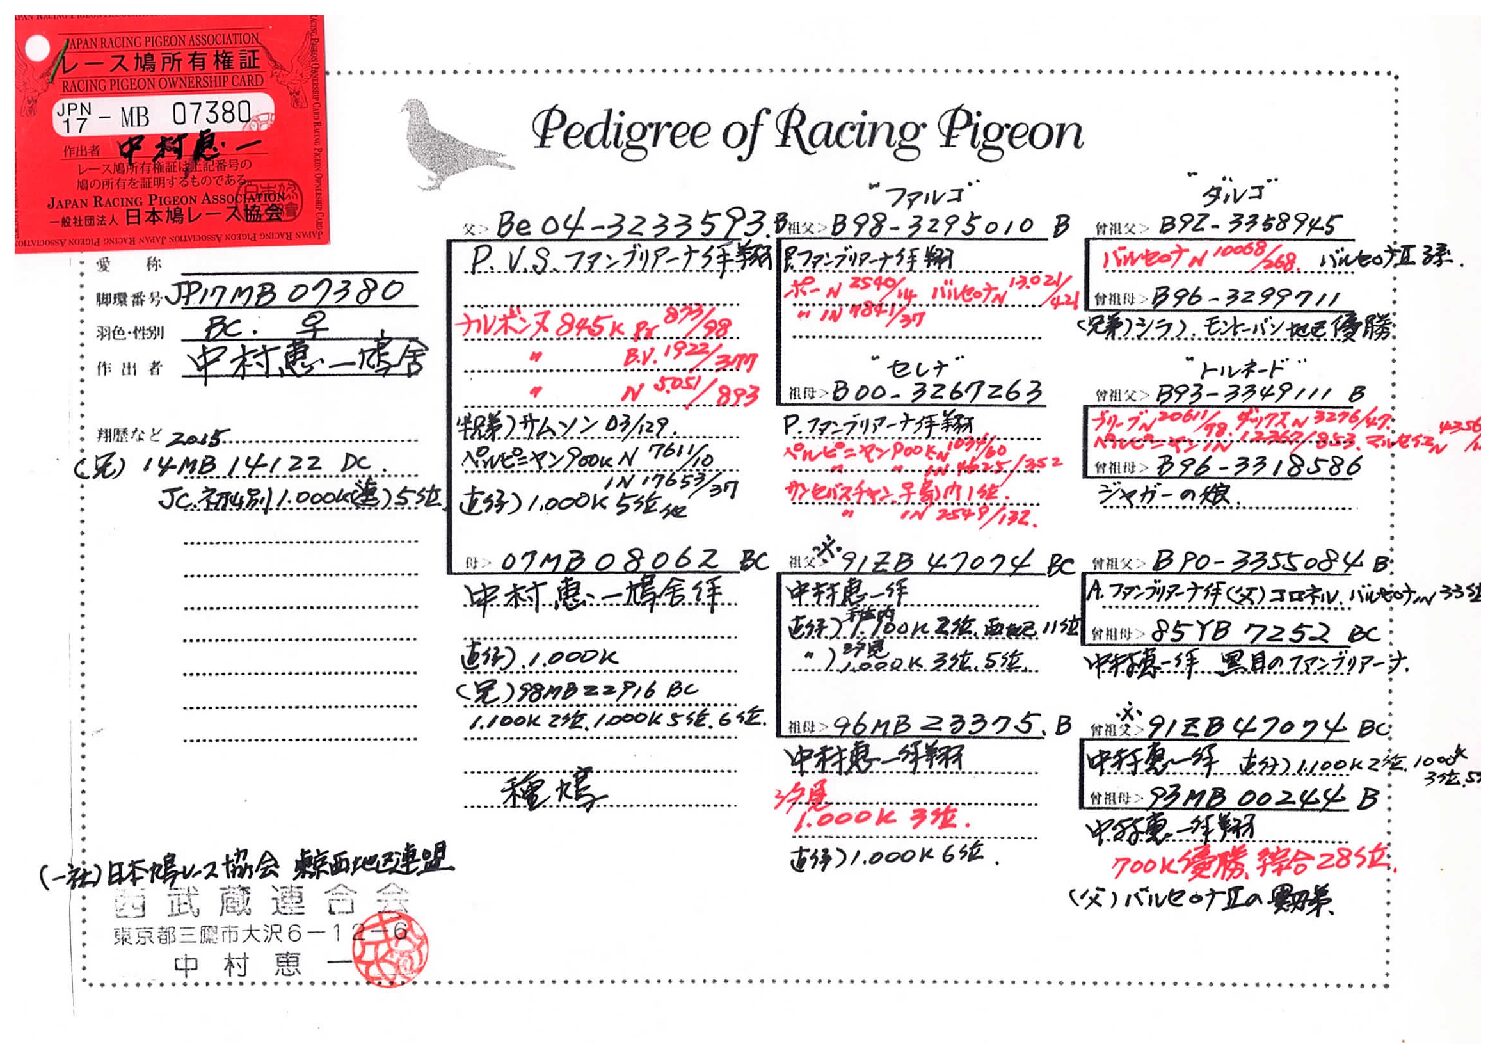 JAPAN RACING PIGEON ASSOCIATION
レース鳩所有権証
RACING PIGEON OWNERSHIP CARD
JPN
17 - MB 07380
作出者 中村惠一
レース鳩所有権証は上記番号の
鳩の所有を証明するものである。
JAPAN RACING PIGEON ASSOCIATION
一般社団法人 日本鳩レース協会
Pedigree of Racing Pigeon
愛称
脚環番号 JP17MB 07380
羽色・性別 BC. ♀
作出者 中村惠一鳩舎
翔歴など 2015
(兄) 14MB 14122 DC.
JC. 1.000K 5位
父> Be 04-3233593. B
P.V.S.ファンブリアーナ作翔
ナルボンヌ 845K Pr 833/98
〃 B.V. 1922/377
〃 N 5.051/893
サムソン 03/129.
ペルピニャン 900K N 7611/10
IN 17653/37
直仔) 1.000K 5位他
母> 07MB08062 BC
中村惠一鳩舎作
直仔) 1.000K
(兄) 98MB22916 BC
1.100K 2位. 1.000K 5位. 6位.
種鳩
"ファルゴ"
祖父> B98-3295010 B
P.ファンブリアーナ作翔
ポー N 2540/14 バルセロナ N 13.021/421
〃 IN 7841/37
"セレナ"
祖母> B00-3267263
P.ファンブリアーナ作翔
ペルピニャン 900K N 1077/60
〃 IN 4625/352
サンセバスチャン 1位.
〃 IN 2549/132.
祖父> ※ 91ZB 47074 BC
中村惠一作
直仔) 1.100K 2位. 11位
〃) 1.000K 3位. 5位.
祖母> 96MB 23375. B
中村惠一作翔
1.000K 3位.
直仔) 1.000K 6位.
"ダルゴ"
曾祖父> B92-3358945
バルセロナ N 10068/268. バルセロナⅡ 3系.
曾祖母> B96-3299711
(兄弟) シラク. モントーバン地区優勝
"トルネード"
曾祖父> B93-3349111 B
ブリーブ N 20611/78. ダックス N 3276/47.
ペルピニャン IN 12262/853. マルセイユ N 4356
曾祖母> B96-3318586
ジャガーの娘.
曾祖父> B90-3355084 B
A.ファンブリアーナ作 (父) コロネル. バルセロナ IN 33位
曾祖母> 85YB 7252 BC
中村惠一作 黒目のファンブリアーナ.
曾祖父> ※ 91ZB 47074 BC
中村惠一作 直仔) 1.100K 2位. 1000K
3位. 5
曾祖母> 93MB 00244 B
中村惠一作翔
700K 優勝. 総合28位.
(父) バルセロナⅡの
(一社) 日本鳩レース協会 東京西地区連盟
西武蔵連合会
東京都三鷹市大沢6-12-6
中村惠一